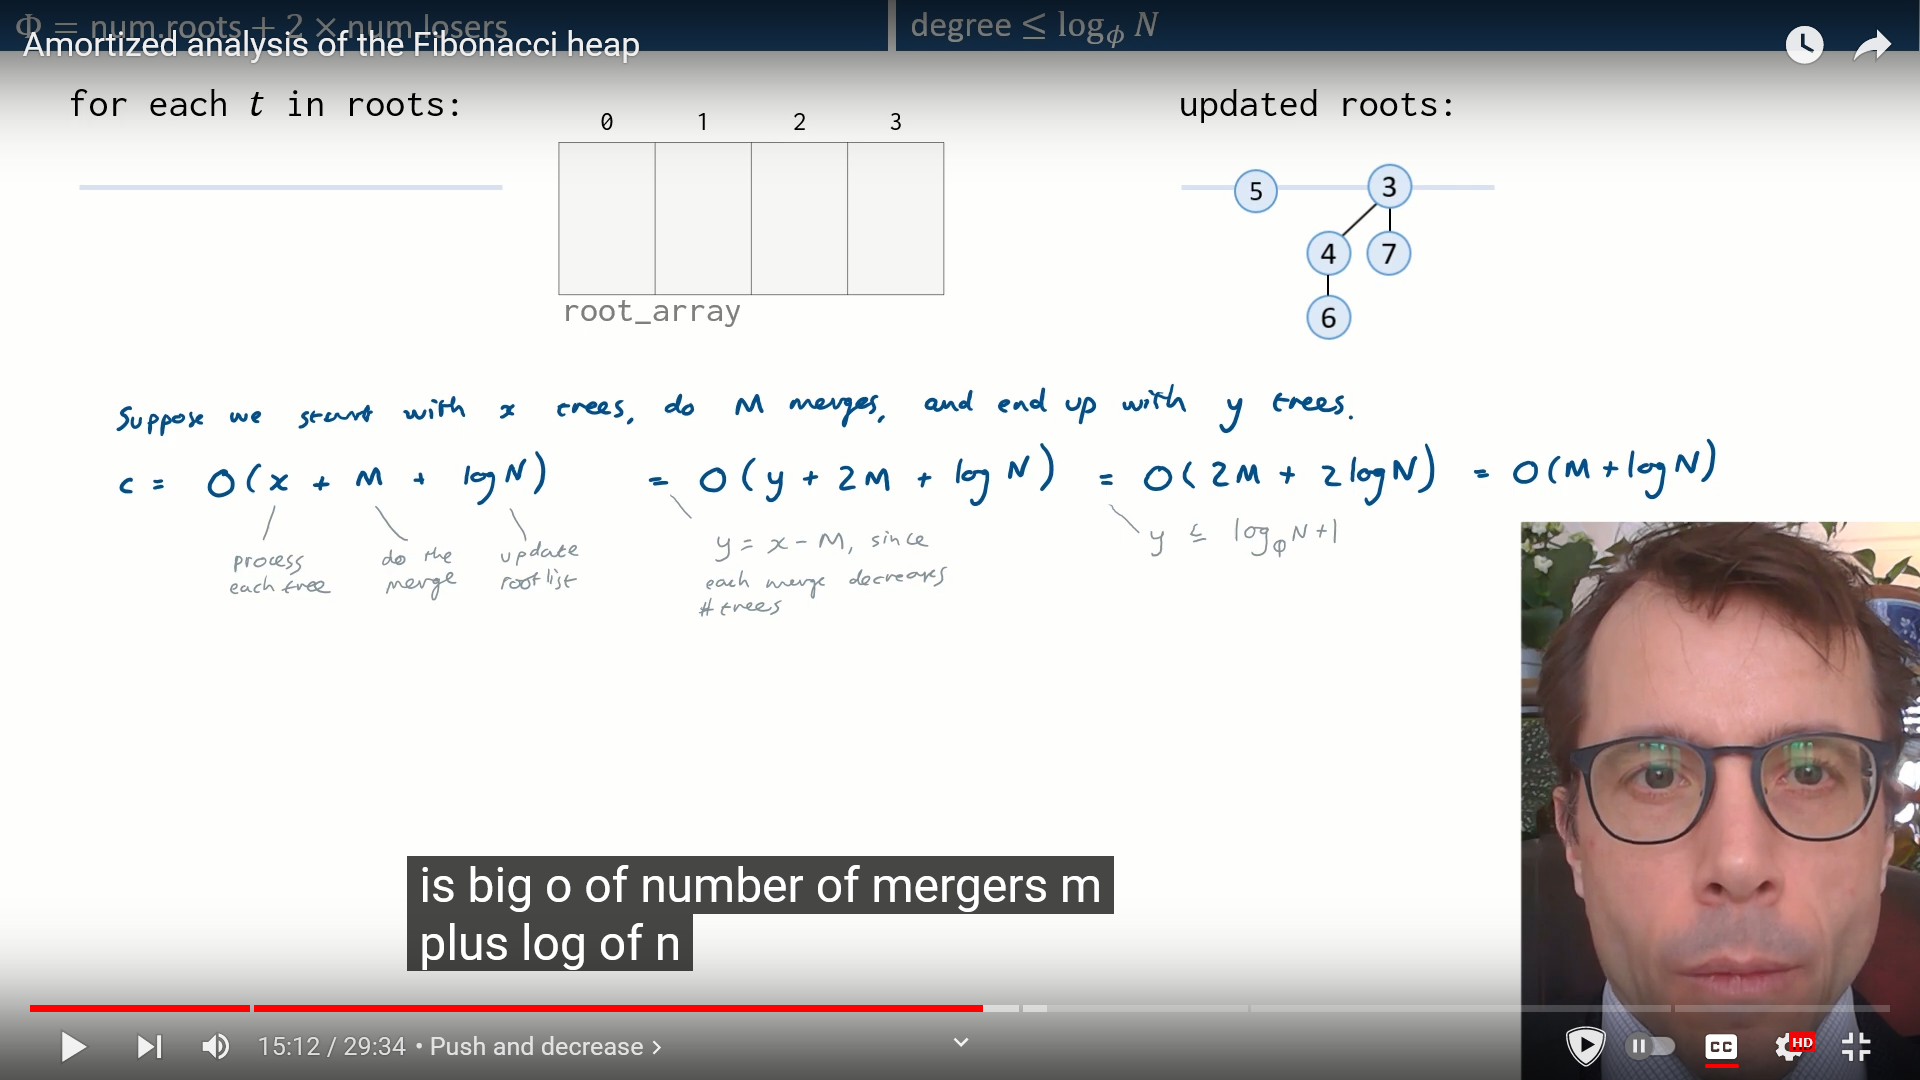 Φ = num.roots + 2 × num.losers
degree ≤ log_ϕ N
Amortized analysis of the Fibonacci heap
for each t in roots:
0 1 2 3
root_array
updated roots:
5 3
4 7
6
Suppose we start with x trees, do M merges, and end up with y trees.
c = O(x + M + log N) = O(y + 2M + log N) = O(2M + 2 log N) = O(M + log N)
process
each tree
do the
merge
update
root list
y = x - M, since
each merge decreases
# trees
y ≤ log_ϕ N + 1
is big o of number of mergers m
plus log of n
15:12 / 29:34 • Push and decrease >
CC
HD